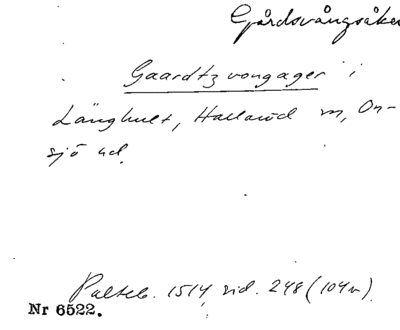 Gårdsvångsåker
Gaardtzvongager i
Långhult, Hallaröd sn, On-
sjö hd.
Palteb. 1514, sid. 248 (104r).
Nr 6522.